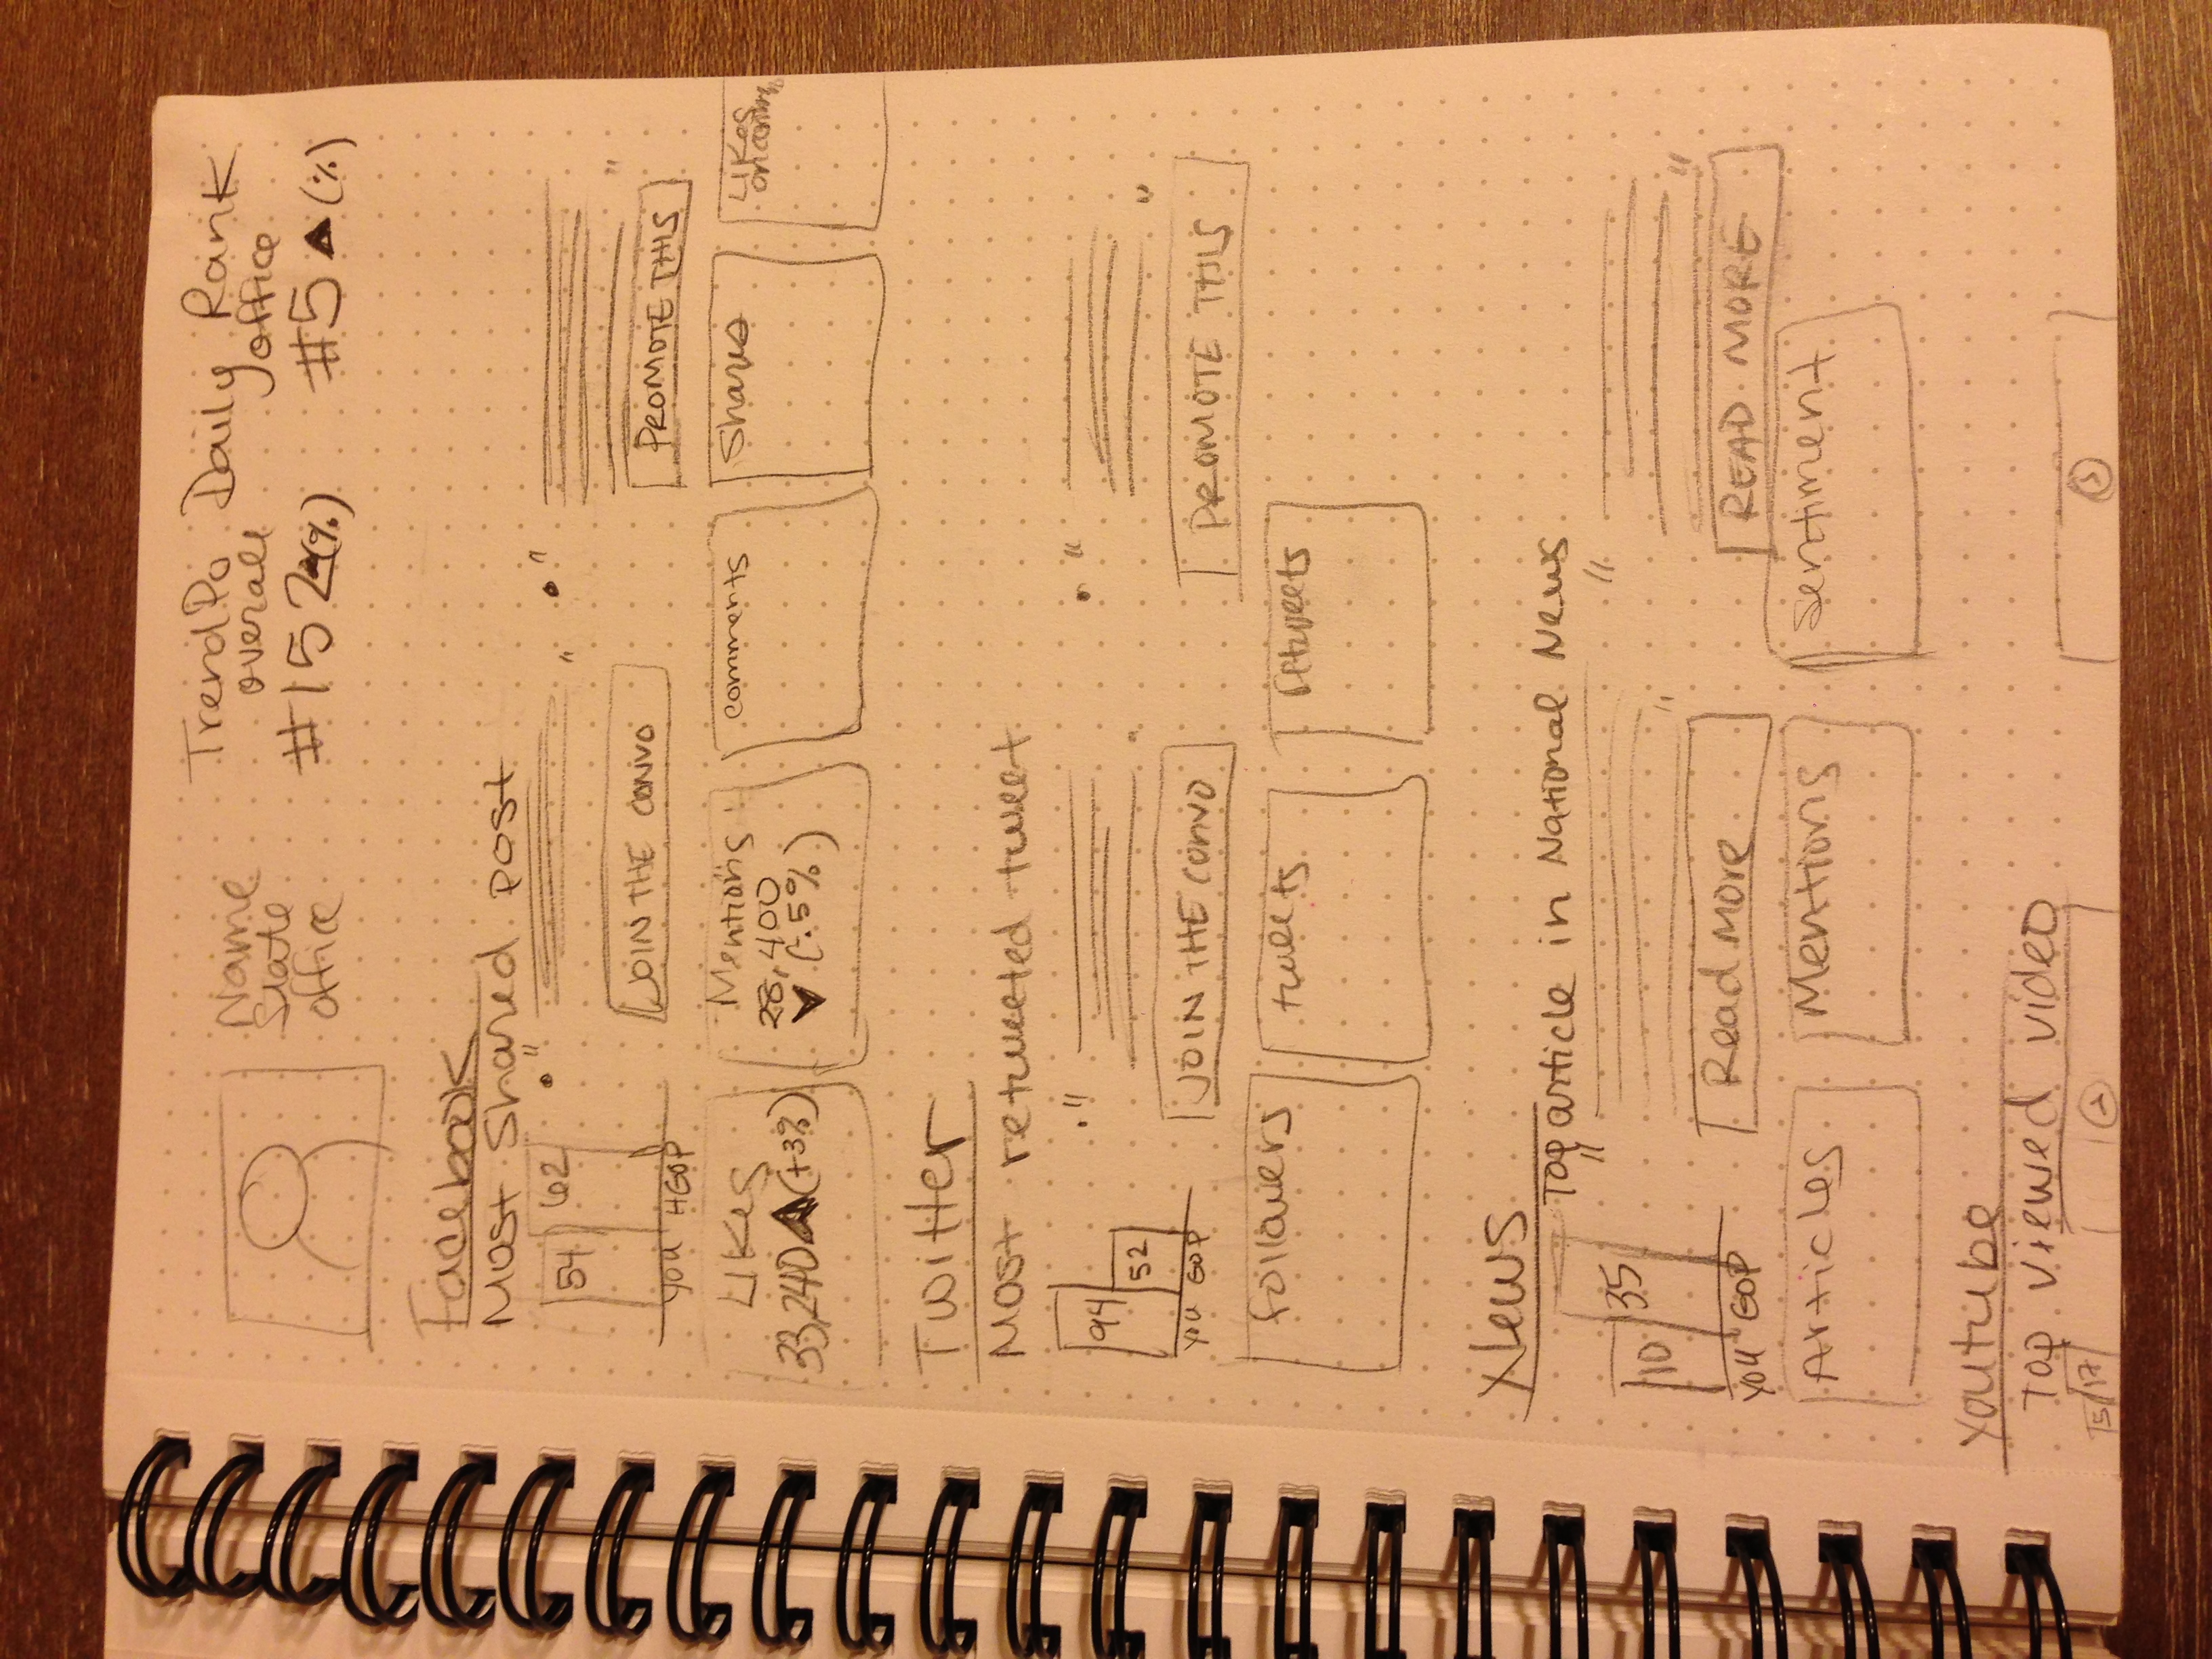 TrendPo Daily Rank
Name
State
office
overall
office
#152 ▲(%)
#5 ▲ (%)
Facebook
Most shared post
54 62
YOU HGOP
" "
" "
JOIN THE CONVO
PROMOTE THIS
Likes
33,240 ▲ (+3%)
Mentions
28,400
▼ (-.5%)
comments
Shares
Likes
Twitter
Most retweeted tweet
94 52
YOU GOP
" "
" "
JOIN THE CONVO
PROMOTE THIS
followers
tweets
retweets
News
Top article in National News
10 35
YOU GOP
" "
" "
Read More
READ MORE
Articles
Mentions
Sentiment
Youtube
Top viewed video
15 17